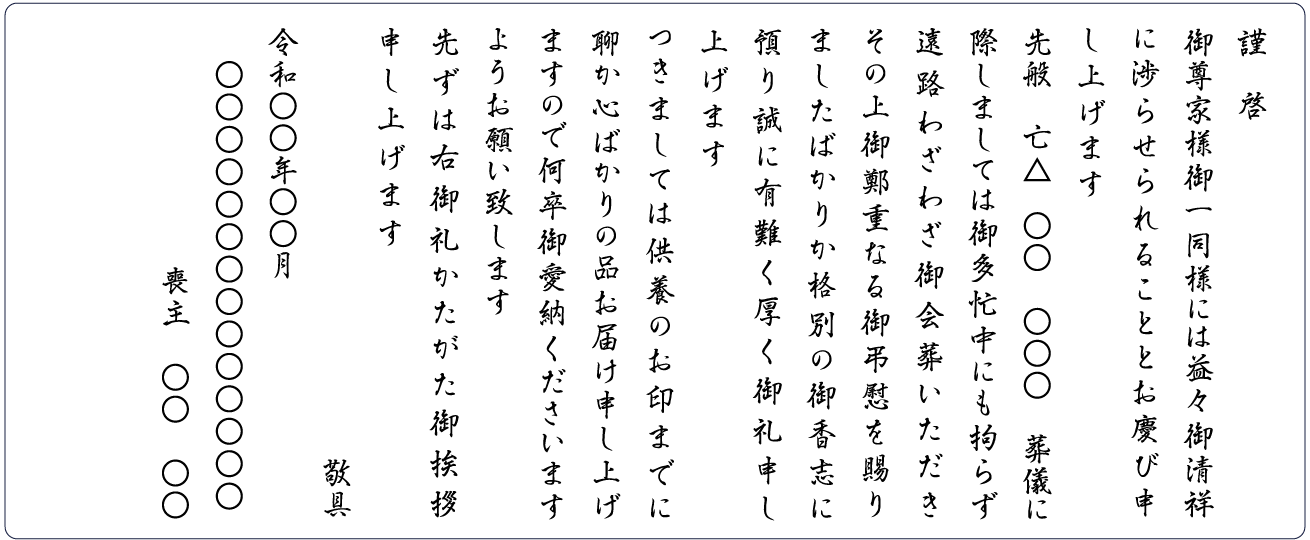 謹　啓
御尊家様御一同様には益々御清祥
に渉らせられることとお慶び申
し上げます
先般　亡△　〇〇　〇〇〇　葬儀に
際しましては御多忙中にも拘らず
遠路わざわざ御会葬いただき
その上御鄭重なる御弔慰を賜り
ましたばかりか格別の御香志に
預り誠に有難く厚く御礼申し
上げます
つきましては供養のお印までに
聊か心ばかりの品お届け申し上げ
ますので何卒御愛納くださいます
ようお願い致します
先ずは右御礼かたがた御挨拶
申し上げます
敬具
令和〇〇年〇〇月
〇〇〇〇〇〇〇〇〇〇〇〇〇〇
喪主　〇〇　〇〇